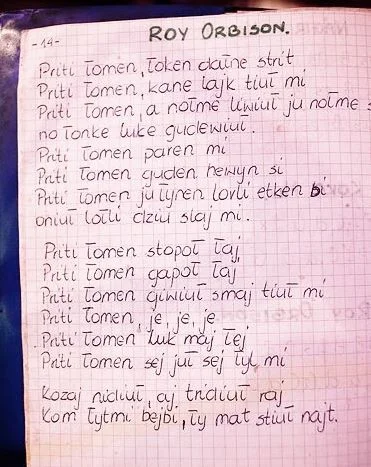 -14-
ROY ORBISON.
Priti łomen, łoken dałne strit
Priti łomen, kane łajk tiuł mi
Priti łomen, a nołme liwiuł ju nołme
no łonke luke gudewiuł.
Priti łomen paren mi
Priti łomen guden hewyn si
Priti łomen ju łyren lovli etken bi
oniuł lołli dziu slaj mi.
Priti łomen stopoł łaj
Priti łomen gapoł łaj
Priti łomen giwiuł smaj tiuł mi
Priti łomen, je, je, je
Priti łomen luk maj łej
Priti łomen sej juł sej łyl mi
Kozaj nidiuł, aj tridiuł raj
Kom łytmi bejbi, ły mat stiuł najt.